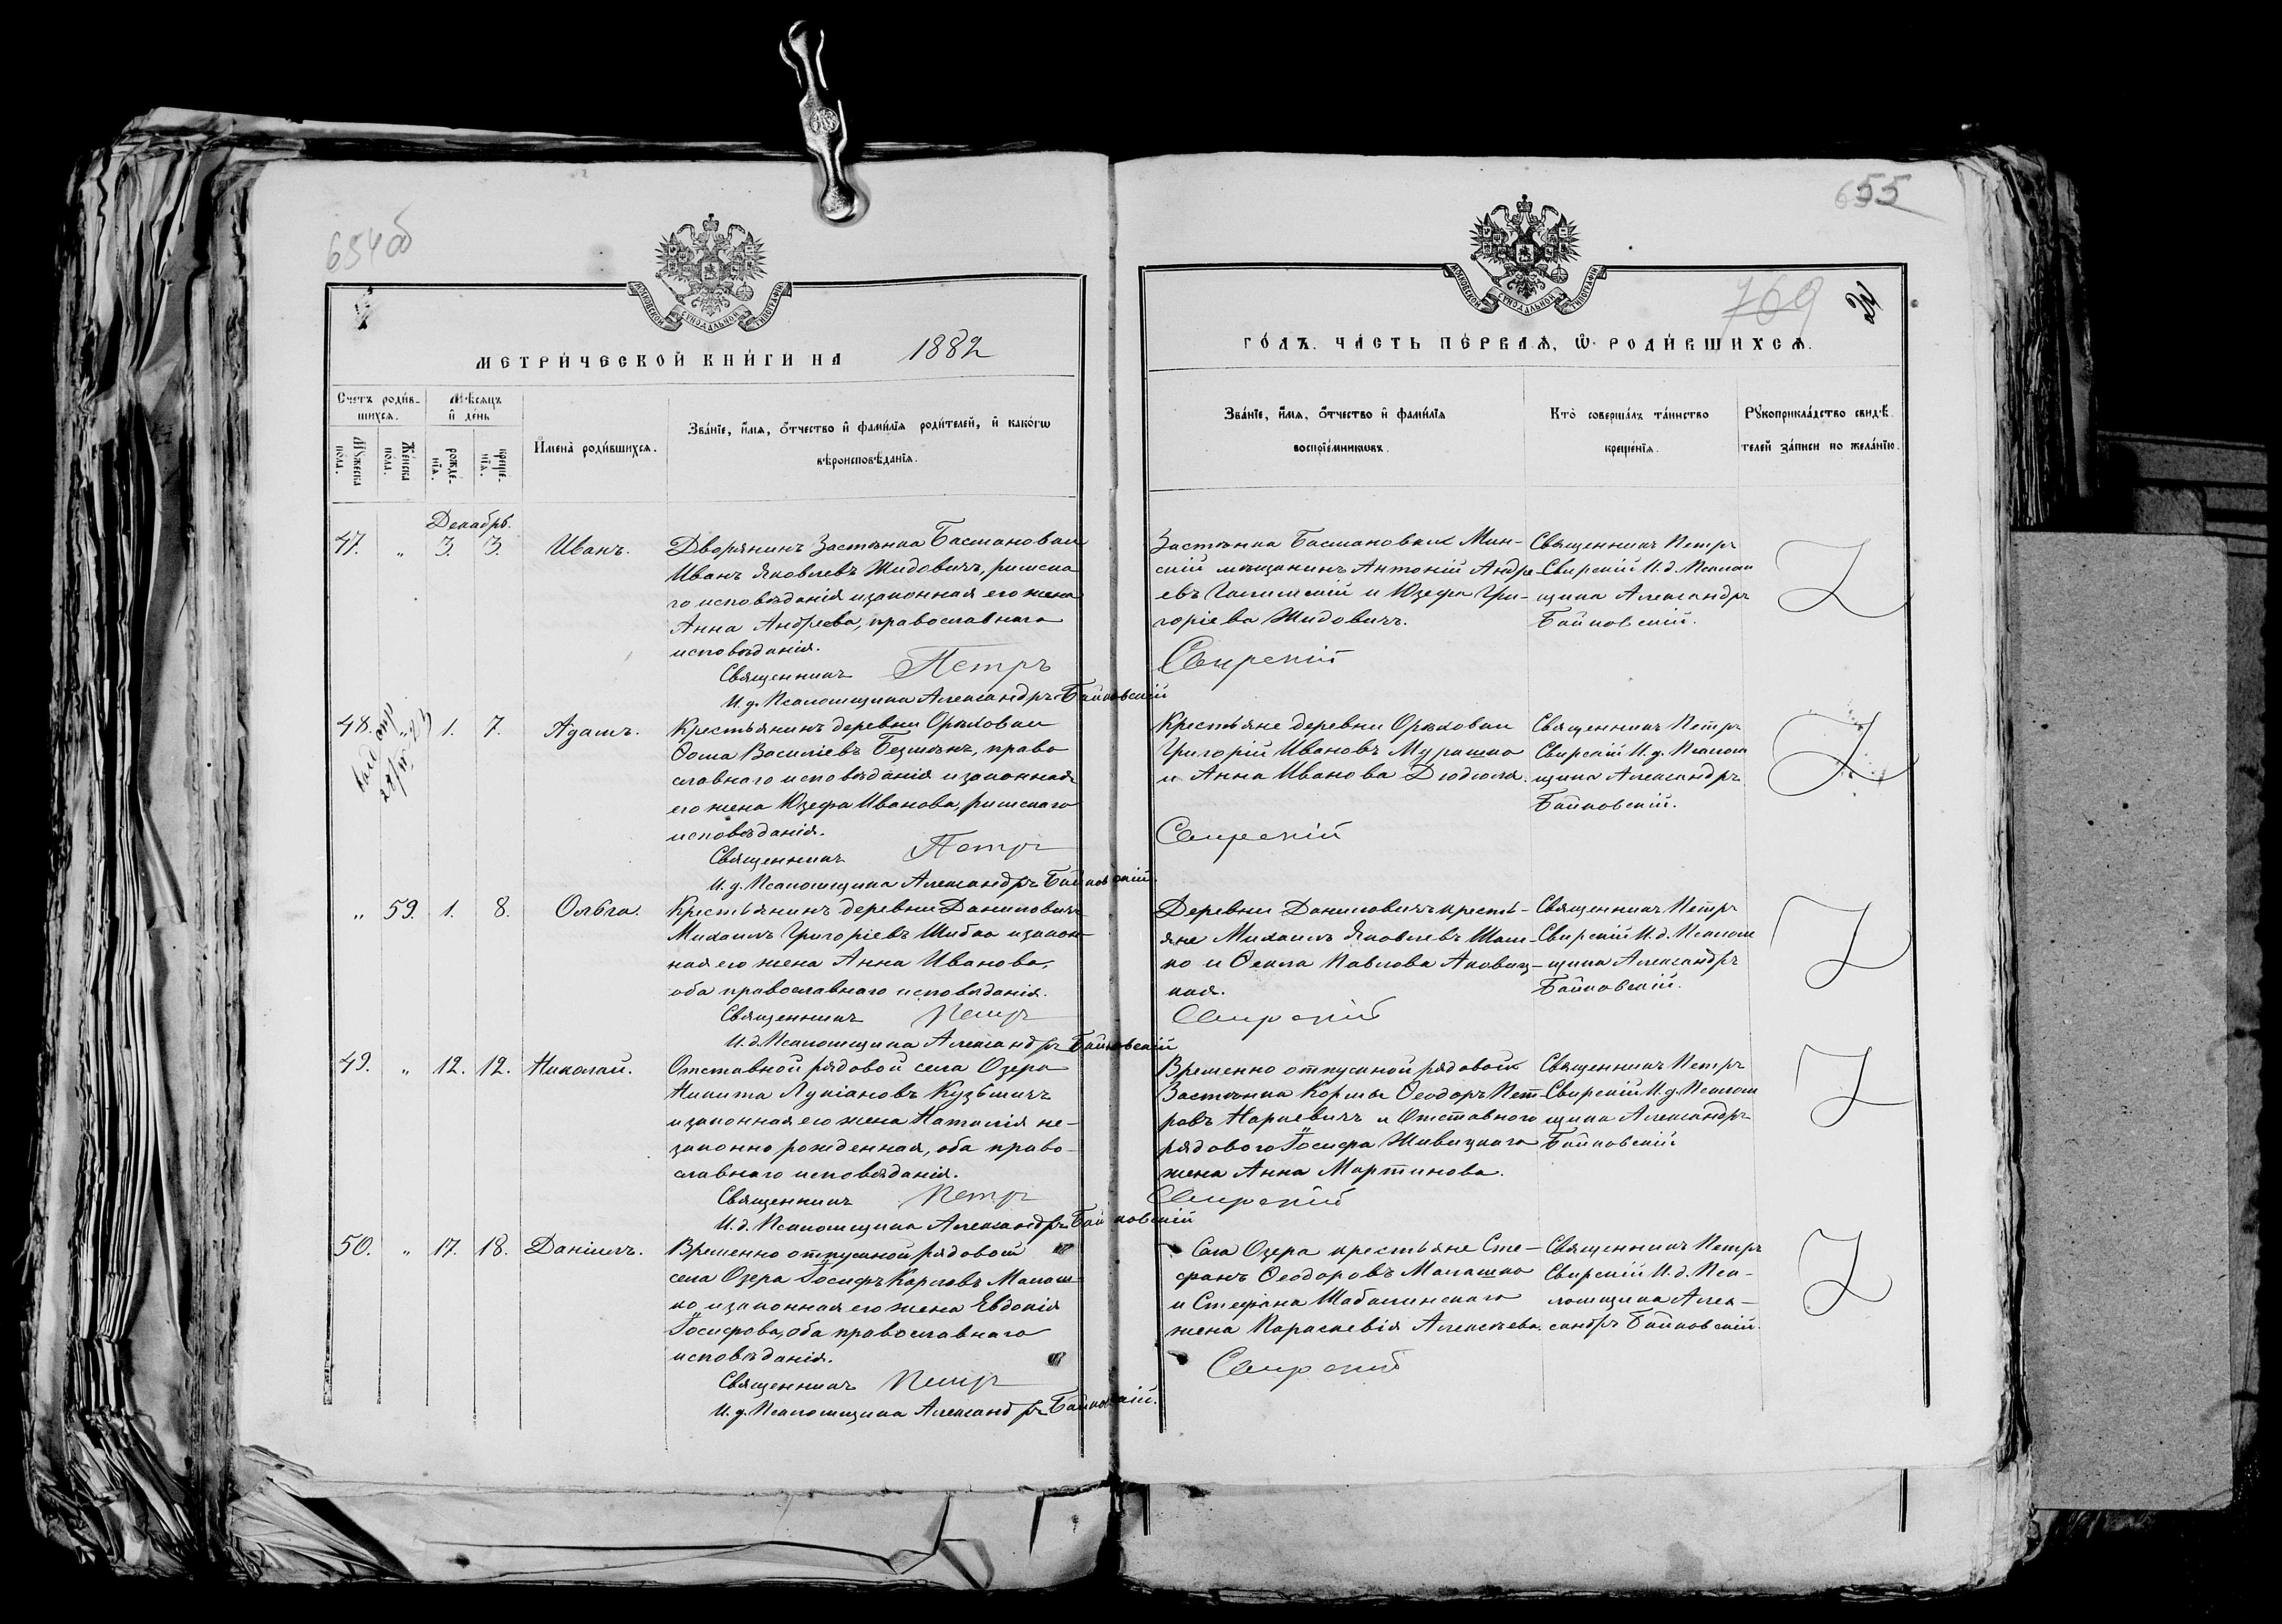 654об
655
769
МОСКОВСКОЙ СѴНОДАЛЬНОЙ ТИПОГРАФІИ
МЕТРИ́ЧЕСКОЙ КНИ́ГИ НА 1882
МОСКОВСКОЙ СѴНОДАЛЬНОЙ ТИПОГРАФІИ
ГО́ДЪ. ЧА́СТЬ ПЕ́РВАѦ, Ѡ РОДИ́ВШИХСѦ.
Счетъ роди́в-
шихсѧ.
Мѣсѧцъ
и҆ де́нь
Мꙋжеска
пола.
Же́нска
пола.
рожде-
нїѧ.
креще-
нїѧ.
И҆мена̀ роди́вшихсѧ.
Зва́нїе, и҆́мѧ, ѻ҆́тчество и҆ фами́лїѧ роди́телей, и҆ како́гѡ
вѣроисповѣ́данїѧ.
Зва́нїе, и҆́мѧ, ѻ҆́тчество и҆ фами́лїѧ
воспрїе́мникѡвъ.
Кто̀ соверша́лъ та́инство
креще́нїѧ.
Рꙋкоприкла́дство свидѣ́-
телей за́писи по жела́нїю.
Декабрь.
47. „ 3. 3. Иванъ.
Дворянинъ Застѣнка Басмановки
Иванъ Яковлевъ Жидовичъ, римска
го исповѣданія и законная его жена
Анна Андреева, православнаго
исповѣданія.
Священникъ Петръ
И. д. Псаломщика Александръ Байковскій
Застѣнка Басмановки Мин-
скій мѣщанинъ Антоній Андре-
евъ и Юзефа Гри-
горіева Жидовичъ.
Свирскій
Священникъ Петръ
Свирскій И. д. Псалом
щика Александръ
Байковскій.
48. 1. 7. Адамъ.
Крестьянинъ деревни Орѣховки
Ѳома Василіевъ Безмѣнъ, право
славнаго исповѣданія и законная
его жена Юзефа Иванова, римскаго
исповѣданія.
Священникъ Петръ
И. д. Псаломщика Александръ Байковскій.
Крестьяне деревни Орѣховки
Григорій Ивановъ Мурашко
и Анна Иванова Дюдюля.
Свирскій
Священникъ Петръ
Свирскій И. д. Псалом
щика Александръ
Байковскій.
„ 59. 1. 8. Ольга.
Крестьянинъ деревни Даниловичъ
Михаилъ Григоріевъ Шибко и закон-
ная его жена Анна Иванова,
оба православнаго исповѣданія.
Священникъ Петръ
И. д. Псаломщика Александръ Байковскій
Деревни Даниловичъ кресть-
яне Михаилъ Яковлевъ Шаш-
ко и Ѳекла Павлова
кая.
Свирскій
Священникъ Петръ
Свирскій И. д. Псалом
щика Александръ
Байковскій.
49. „ 12. 12. Николай.
Отставной рядовой села Озера
Никита Лукіановъ Кузьмичъ
и законная его жена Наталія не-
законно рожденная, оба право-
славнаго исповѣданія.
Священникъ Петръ
И. д. Псаломщика Александръ Байковскій
Временно отпускной рядовой
Застѣнка Коршы Ѳеодоръ Пет-
ровъ Наркевичъ и Отставного
рядового Іосифа Живицкаго
жена Анна Мартинова.
Свирскій
Священникъ Петръ
Свирскій И. д. Псалом
щика Александръ
Байковскій
50. „ 17. 18. Даніилъ.
Временно отпускной рядовой
села Озера Іосифъ Карловъ Малаш-
ко и законная его жена Евдокія
Іосифова, оба православнаго
исповѣданія.
Священникъ Петръ
И. д. Псаломщика Александръ Байковскій.
Села Озера крестьяне Сте-
фанъ Ѳеодоровъ Малашко
и Стефана Шабалинскаго
жена Параскевія Алексѣева.
Свирскій
Священникъ Петръ
Свирскій И. д. Пса-
ломщика Алек-
сандръ Байковскій.